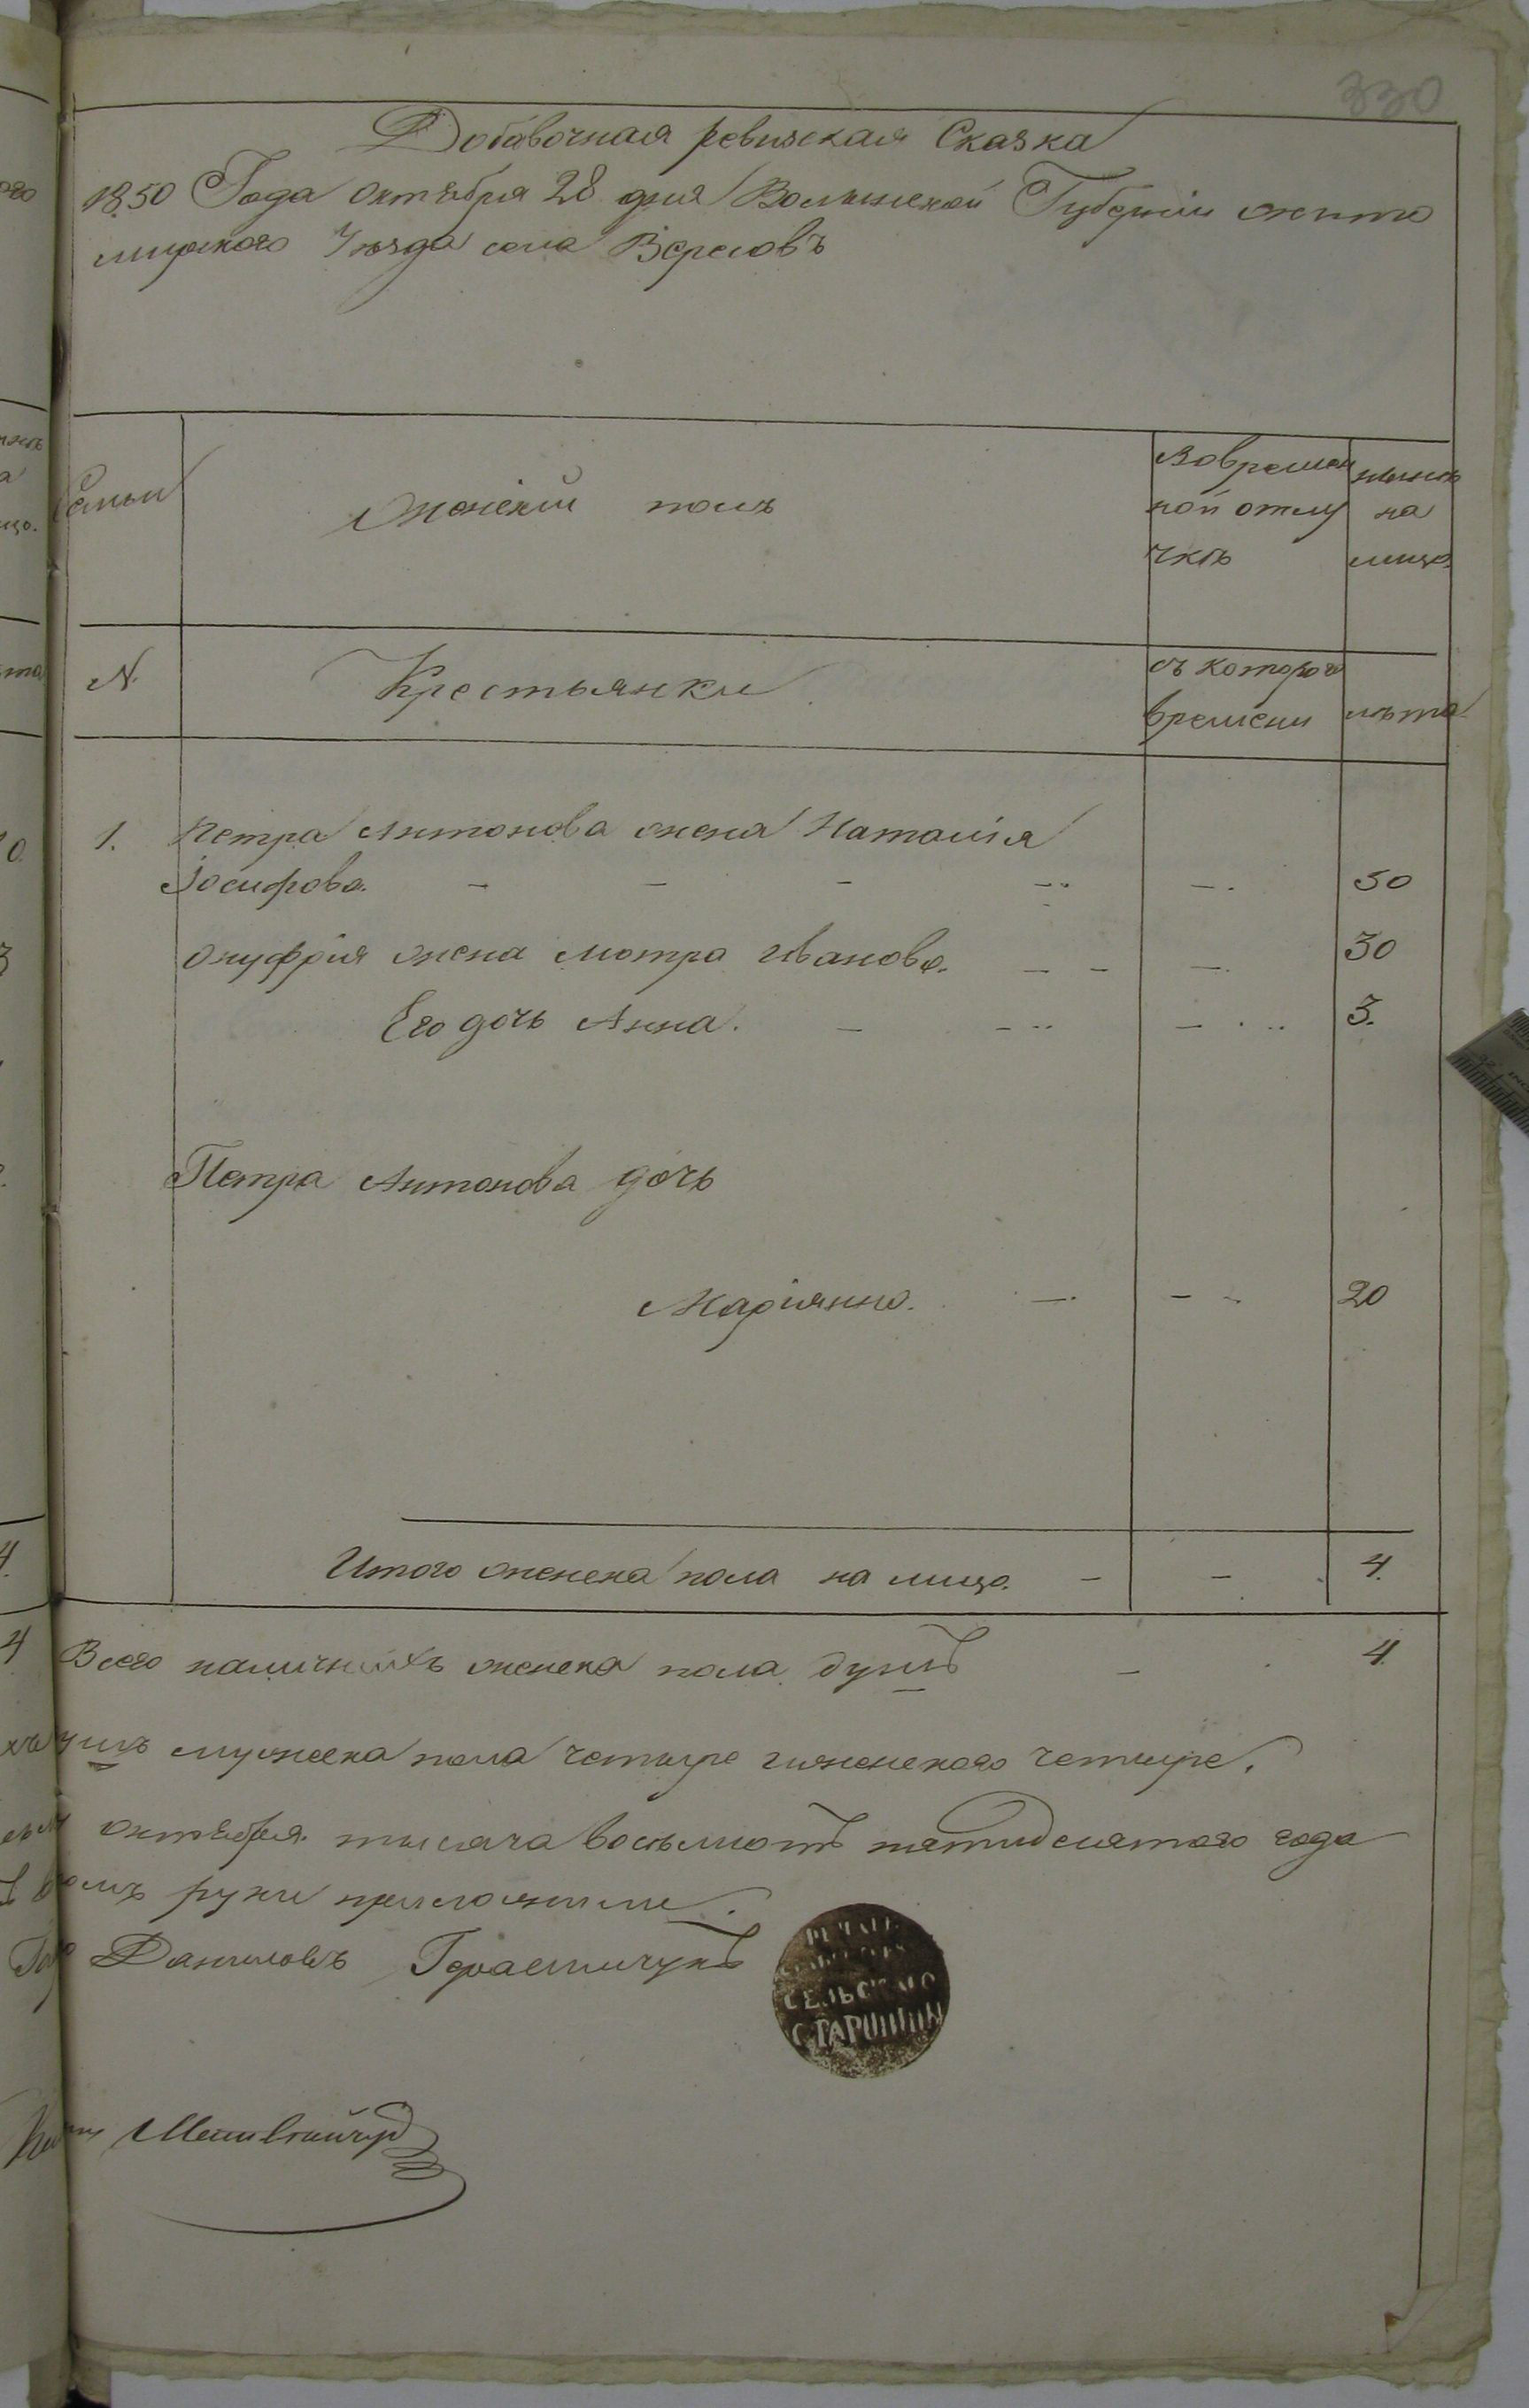 330
Добавочная ревизская Сказка
1850 Года октября 28 дня Волынской Губернии жито
мирского Уѣзда села Вересовъ
Семьи
Женский полъ
Вовремен
ной отлу
чкѣ
нынѣ
на
лицо.
N.
Крестьянки
съ которого
времени
лѣта
1. Петра Антонова жена Наталія
Іосифова. - - - - - 50
Онуфрія жена Мотра Иванова. - - - 30
Его дочь Анна. - - - 3.
Петра Антонова дочь
Маріянна. - - - 20
Итого женска пола на лицо. - - 4.
Всего наличныхъ женска пола душъ - 4
душъ мужеска пола четыре и женского четыре.
октября тысяча восьмсотъ пятидесятого года
руки приложили.
Даниловъ Герасимчукъ
СЕЛЬСКАГО
СТАРШИНЫ